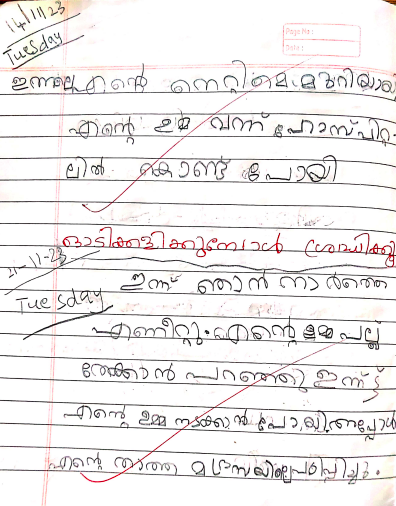 14/11/23
Tuesday
Page No:
Date:
ഇന്നലെ എന്റെ നെറ്റിമെ മുറിയായി
എന്റെ ഉമ്മ വന്ന് ഹോസ്പിറ്റ
ലിൽ കൊണ്ട് പോയി
ഓടിക്കളിക്കുമ്പോൾ ശ്രദ്ധിക്കൂ
21-11-23
ഇന്ന് ഞാൻ നാർത്തെ
Tuesday
എണീറ്റു. എന്റെ ഉമ്മ പല്ല്
തേക്കാൻ പറഞ്ഞു ഇന്ന്ട്ട്
എന്റെ ഉമ്മ നടക്കാൻ പോയി അപ്പോൾ
എന്റെ താത്ത മദ്രസയിലെ പഠിപ്പിച്ചു.